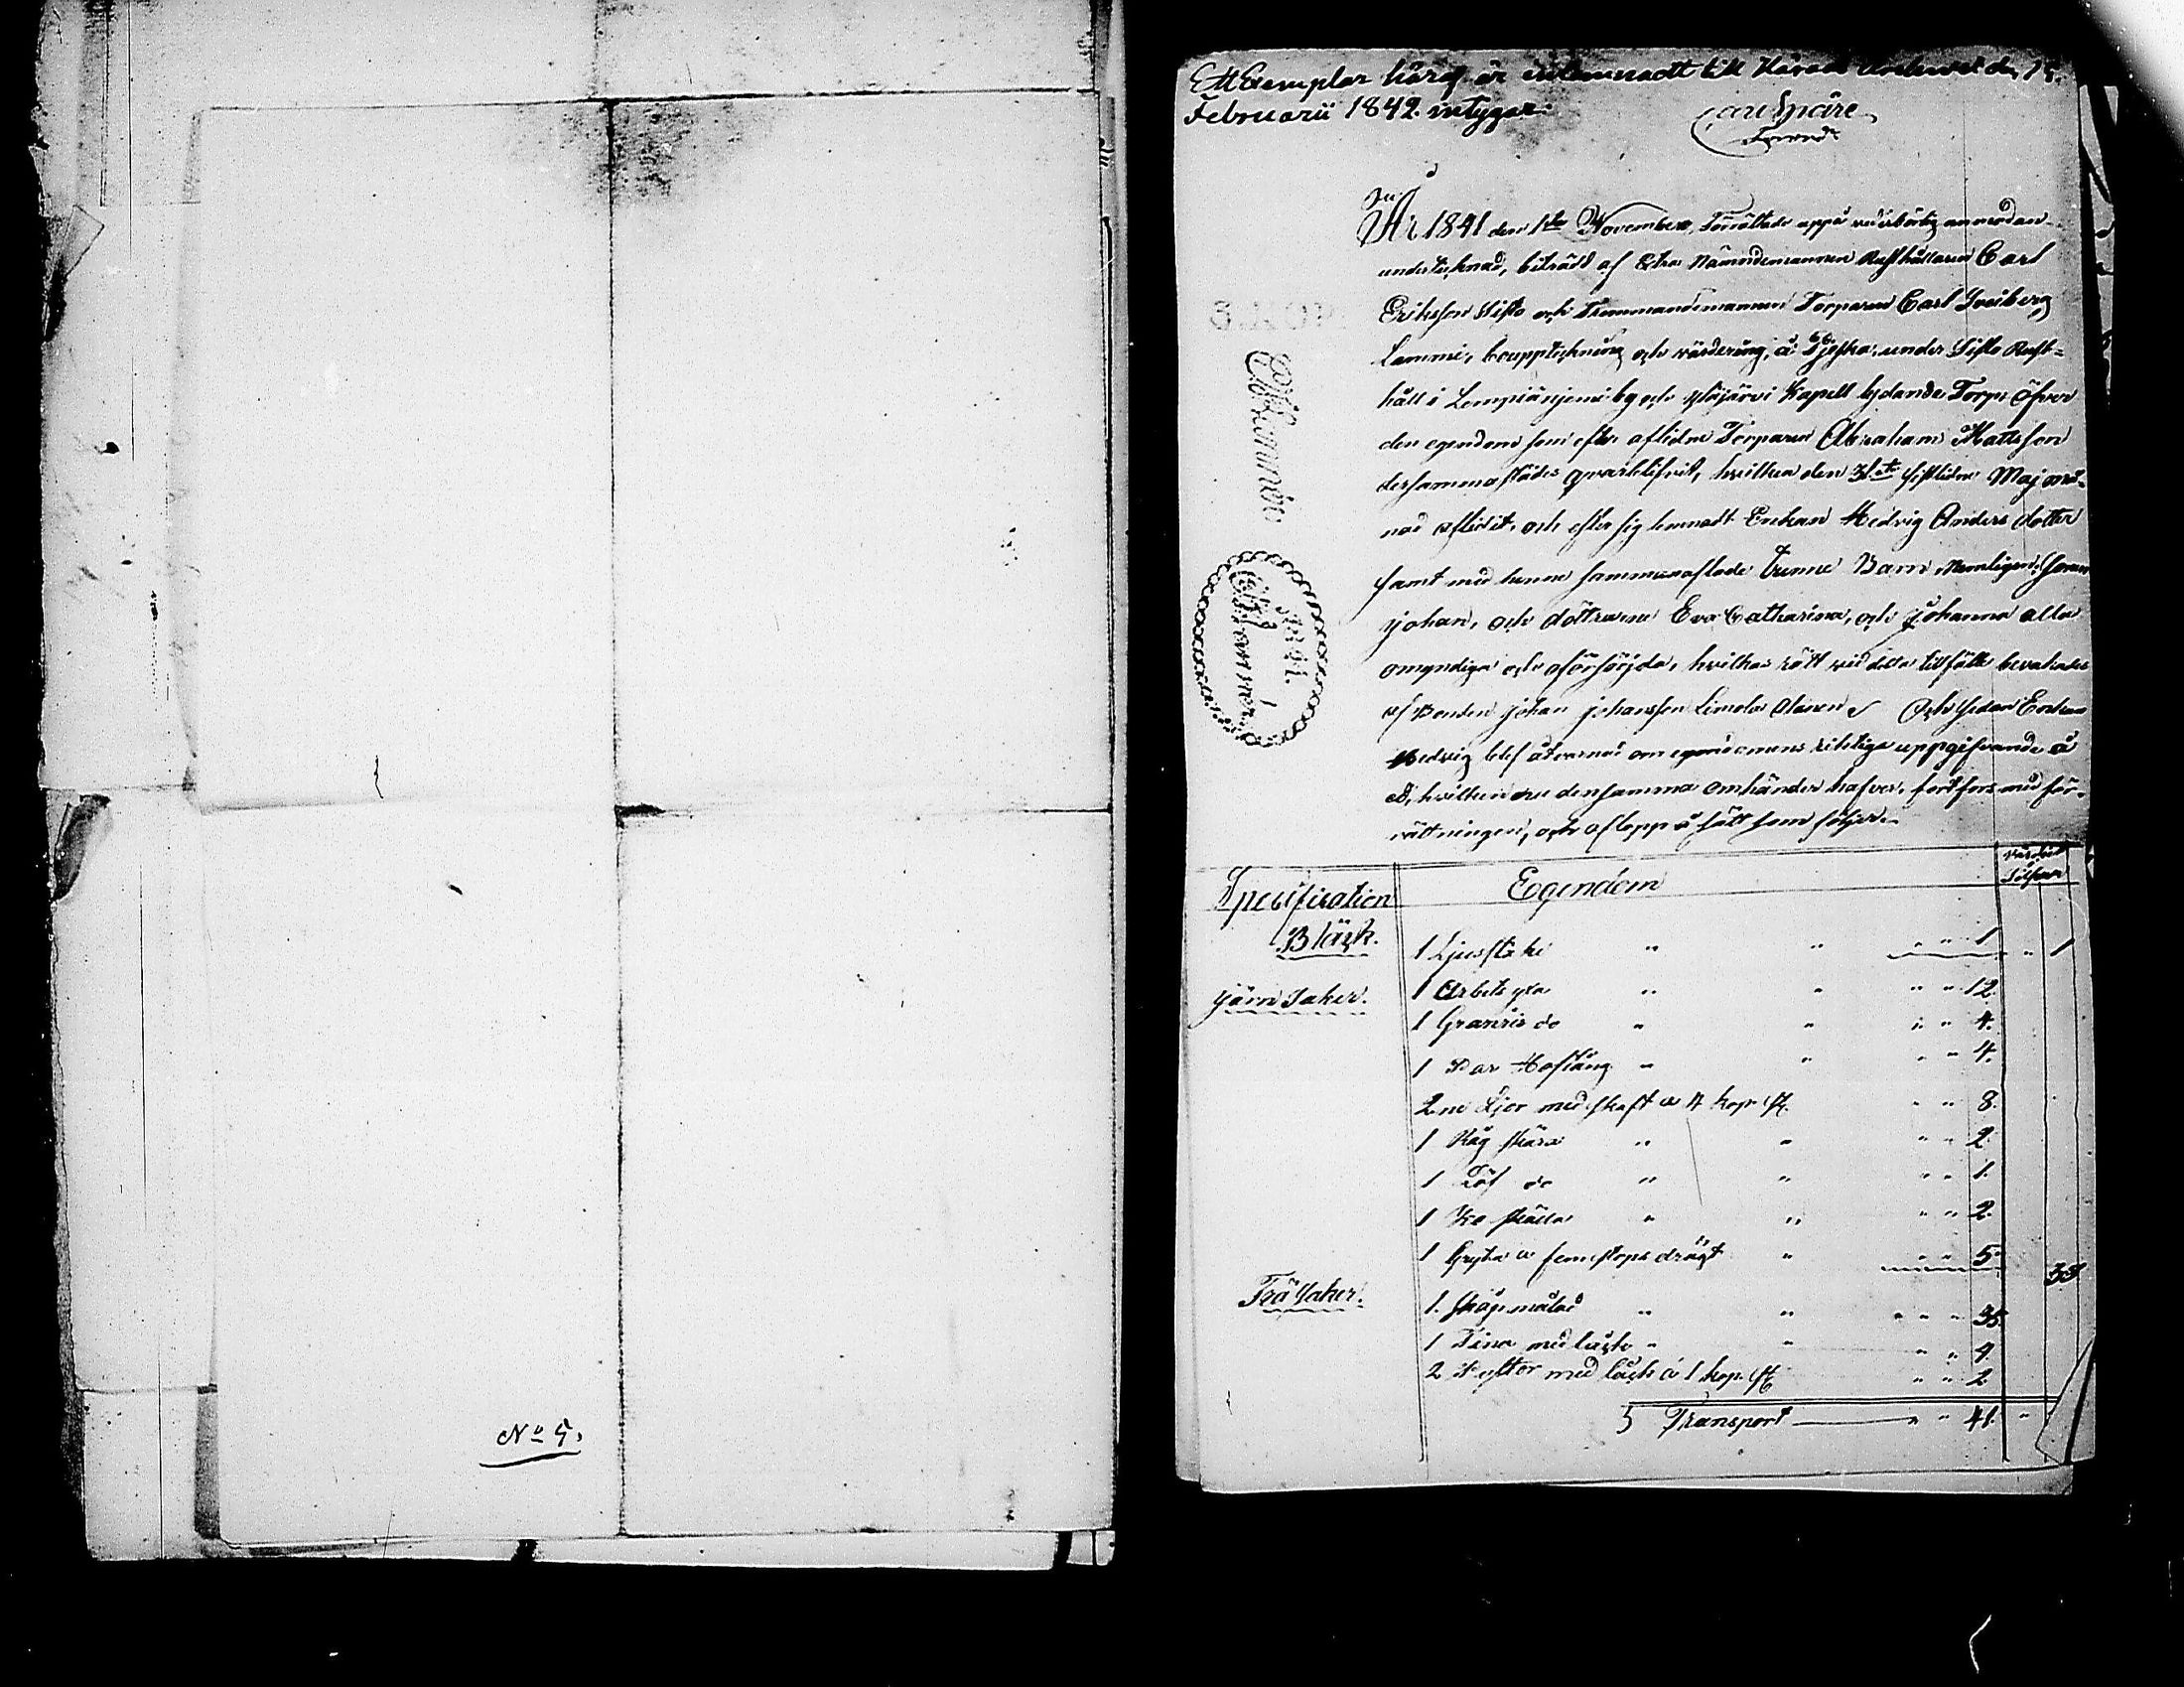 No 5.
Ett Exemplar häraf är inlemnadt till Härads Archivet den 15.
Februarii 1842. intygar:
Carl Spåre
År 1841 den 1sta November, Förrättade uppå vederbörlig anmodan
undertecknad, biträdd af Extra Nämndemannen Rusthållaren Carl
Eriksson Sifto och Frammandemannen Torparen Carl Sveiberg
Lammi, bouppteckning och värdering, å Tjeska under Sifto Rust-
håll i Lempiäniemi by och Ylöjärvi Kapell lydande Torp öfver
den egendom som efter aflidne Torparen Abraham Mattsson
dersammastädes qvarblifvit, hvilken den 31ste sistledne Maj må-
nad aflidit, och efter sig lemnadt Enkan Hedvig Anders dotter
samt med henne sammanaflade Trenne Barn Namligen: Sonen
Johan, och döttrarne Eva Catharina, och Johanna alla
omyndiga och oförsörjda, hvilkas rätt vid detta tillfälle bevakades
af Bonden Johan Johansson Limola Alanen. Och Sedan Enkan
Hedvig blef åtvarnad om egendomens riktiga uppgifvande å
Ed, hvilken nu densamma omhänder hafver, fortfors med för-
rättningen, och aflopp å sätt som följer.
Specification Egendom Värdet Silfver
Bläck. 1 Ljusstake " " " " 1 " 1
Järn Saker. 1 Arbets yxa " " " " 12.
1 Granris do " " " " 4.
1 Par Hoftång " " " " 4.
2ne Ljor med skaft a 4 kop. st. " " 8.
1 Råg skära " " " " 2.
1 Löf do " " " " 1.
1 Ko skälla " " " " 2.
1 Gryta a fem stops drägt " " " 5. 38
Trä Saker. 1. Skåp målad " " " " " 35.
1 Tina med lock " " " " 4.
2 Byttor med lock a 1 kop. st. " " 2
Transport " " 41. "
1841.